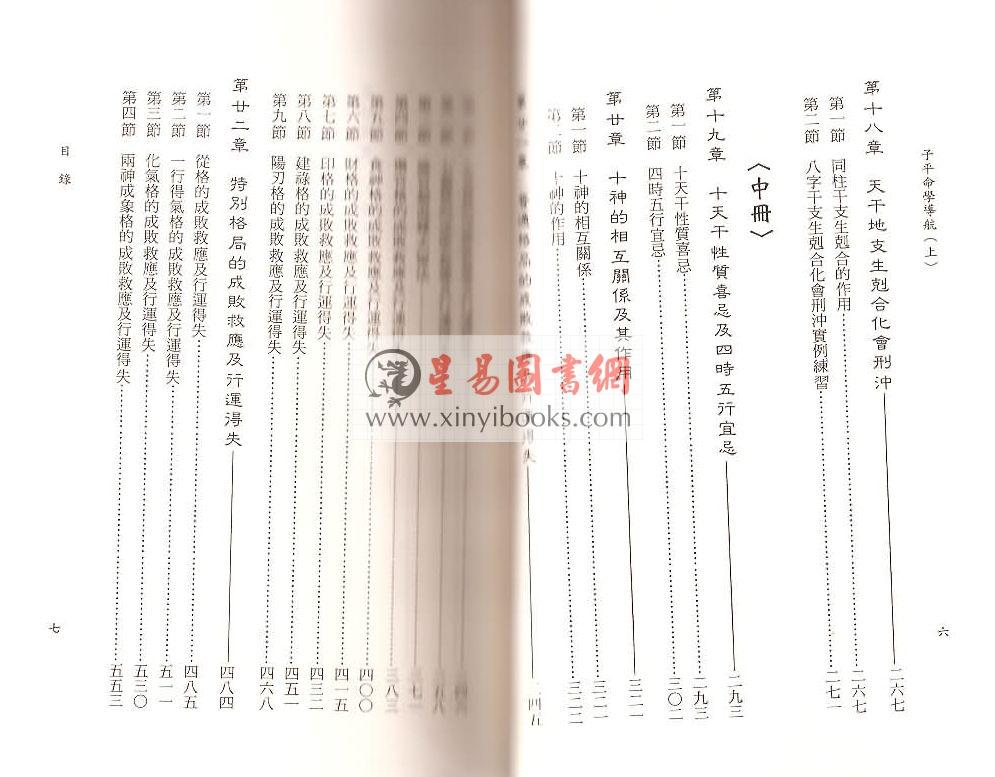 子平命學導航（上）
第十八章 天干地支生剋合化會刑沖 二六七
第一節 同柱干支生剋合的作用 二六七
第二節 八字干支生剋合化會刑沖實例練習 二七一
〈中冊〉
第十九章 十天干性質喜忌及四時五行宜忌 二九三
第一節 十天干性質喜忌 二九三
第二節 四時五行宜忌 三〇二
第廿章 十神的相互關係及其作用 三二一
第一節 十神的相互關係 三二一
第二節 十神的作用 三二二
六
財格的成敗救應及行運得失 四一五
第七節 印格的成敗救應及行運得失 四三二
第八節 建祿格的成敗救應及行運得失 四五一
第九節 陽刃格的成敗救應及行運得失 四六八
第廿二章 特別格局的成敗救應及行運得失 四八四
第一節 從格的成敗救應及行運得失 四八五
第二節 一行得氣格的成敗救應及行運得失 五一一
第三節 化氣格的成敗救應及行運得失 五三〇
第四節 兩神成象格的成敗救應及行運得失 五五三
目錄
七
星易圖書網
www.xinyibooks.com